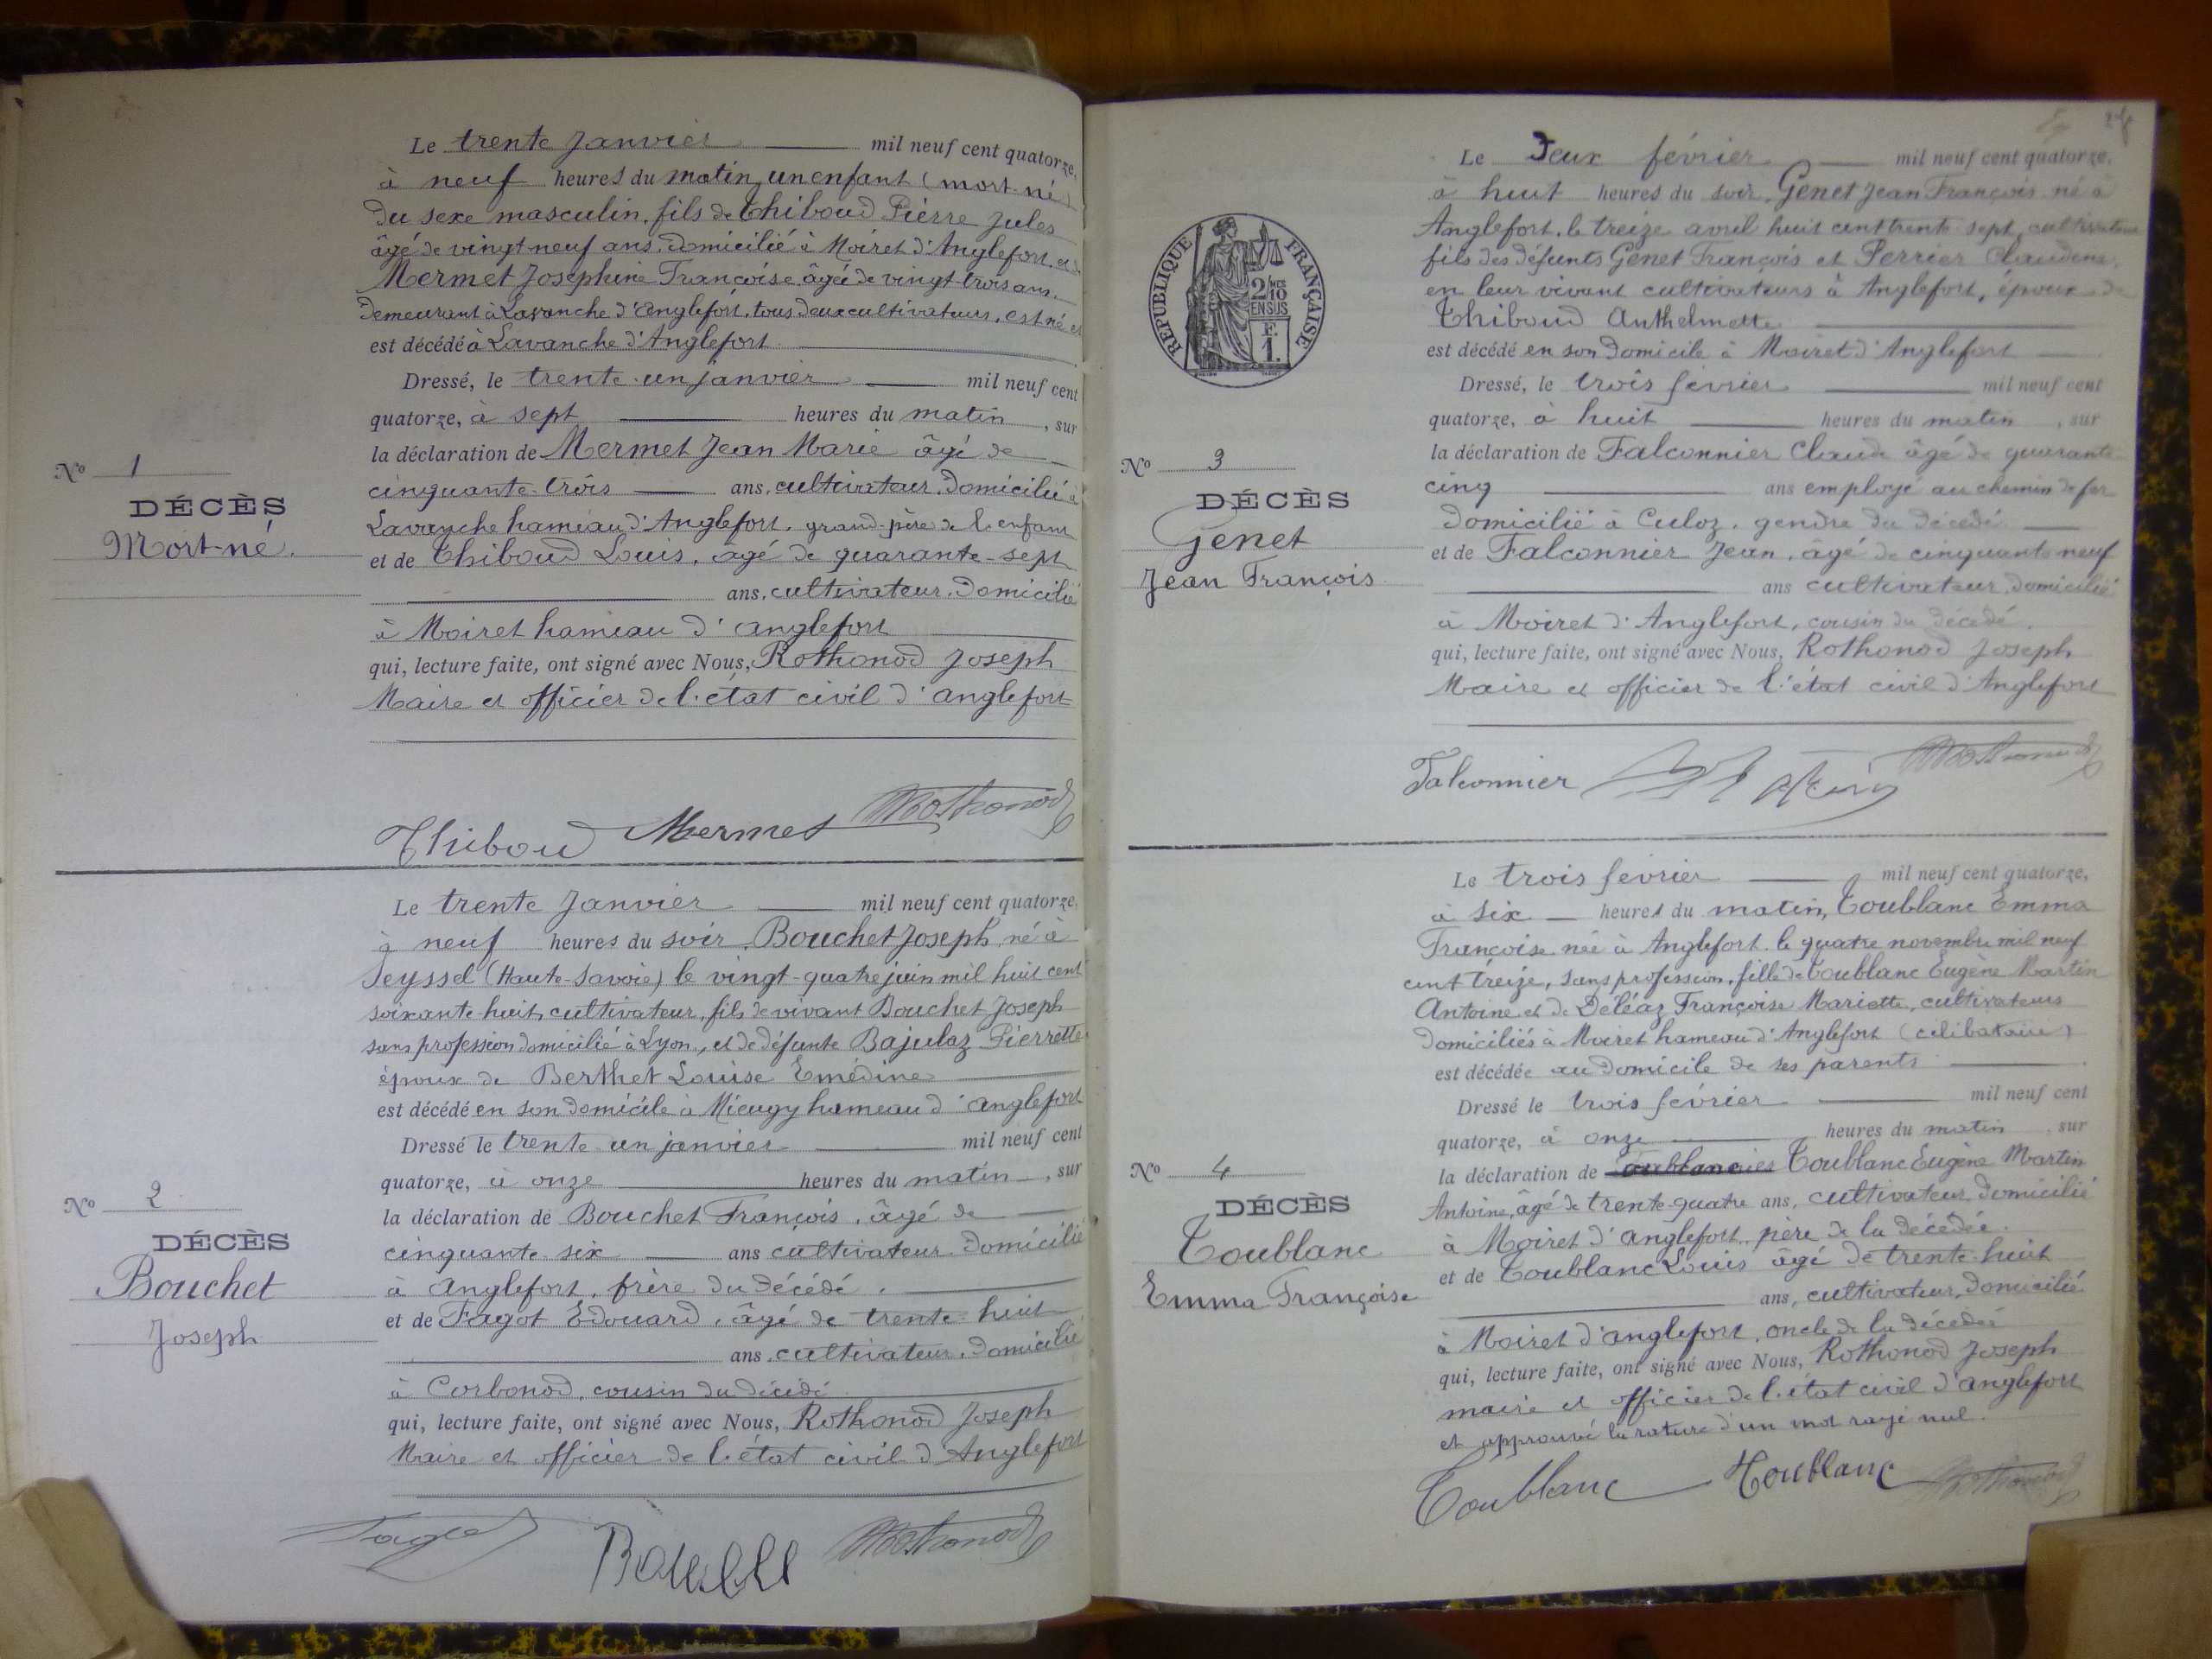 Le trente Janvier mil neuf cent quatorze,
à neuf heures du matin, un enfant (mort-né)
du sexe masculin, fils de Thiboud Pierre Jules
âgé de vingt-neuf ans, domicilié à Moiret d'Anglefort, et
Mermet Joséphine Françoise âgée de vingt-trois ans,
demeurant à Lavanche d'Anglefort, tous deux cultivateurs, est né et
est décédé à Lavanche d'Anglefort
Dressé, le trente-un janvier mil neuf cent
quatorze, à sept heures du matin, sur
la déclaration de Mermet Jean Marie âgé de
cinquante-trois ans, cultivateur, domicilié à
Lavanche hameau d'Anglefort, grand-père de l'enfant
et de Thiboud Louis, âgé de quarante-sept
ans, cultivateur, domicilié
à Moiret hameau d'anglefort
qui, lecture faite, ont signé avec Nous, Rothonod Joseph
Maire et officier de l'état civil d'anglefort
Thiboud Mermet Rothonod
No 1
DÉCÈS
Mort-né.
Le trente Janvier mil neuf cent quatorze,
à neuf heures du soir, Bouchet Joseph, né à
Seyssel (Haute-Savoie) le vingt-quatre juin mil huit cent
soixante-huit, cultivateur, fils de vivant Bouchet Joseph
sans profession domicilié à Lyon, et de défunte Bajulaz Pierrette
époux de Berthet Louise Emédine
est décédé en son domicile à Mieugy hameau d'anglefort
Dressé le trente-un janvier mil neuf cent
quatorze, à onze heures du matin, sur
la déclaration de Bouchet François, âgé de
cinquante-six ans cultivateur domicilié
à anglefort, frère du décédé.
et de Fagot Edouard, âgé de trente-huit
ans, cultivateur, domicilié
à Corbonod, cousin du décédé
qui, lecture faite, ont signé avec Nous, Rothonod Joseph
Maire et officier de l'état civil d'Anglefort
Fagot Rothonod
No 2
DÉCÈS
Bouchet
Joseph
Le Deux février mil neuf cent quatorze,
à huit heures du soir, Genet Jean François né à
Anglefort, le treize avril huit cent trente-sept, cultivateur
fils des défunts Genet François et Perrier Claudine,
en leur vivant cultivateurs à Anglefort, époux de
Thiboud Anthelmette
est décédé en son domicile à Moiret d'Anglefort
Dressé, le trois février mil neuf cent
quatorze, à huit heures du matin, sur
la déclaration de Falconnier Claude âgé de quarante-
cinq ans employé au chemin de fer
domicilié à Culoz, gendre du décédé
et de Falconnier Jean, âgé de cinquante-neuf
ans cultivateur, domicilié
à Moiret d'Anglefort, cousin du décédé.
qui, lecture faite, ont signé avec Nous, Rothonod Joseph
Maire et officier de l'état civil d'Anglefort
Falconnier Rothonod
RÉPUBLIQUE FRANÇAISE
2/10
EN SUS
F.
1.
No 3
DÉCÈS
Genet
Jean François
Le trois février mil neuf cent quatorze,
à six heures du matin, Toublanc Emma
Françoise née à Anglefort le quatre novembre mil neuf
cent treize, sans profession, fille de Toublanc Eugène Martin
Antoine et de Déléaz Françoise Mariette, cultivateurs
domiciliés à Moiret hameau d'Anglefort (célibataire)
est décédée au domicile de ses parents
Dressé le trois février mil neuf cent
quatorze, à onze heures du matin, sur
la déclaration de Toublanc Eugène Martin
Antoine, âgé de trente-quatre ans, cultivateur, domicilié
à Moiret d'anglefort, père de la décédée.
et de Toublanc Louis âgé de trente-huit
ans, cultivateur, domicilié
à Moiret d'anglefort, oncle de la décédée
qui, lecture faite, ont signé avec Nous, Rothonod Joseph
maire et officier de l'état civil d'anglefort
et approuvé la rature d'un mot rayé nul.
Toublanc Toublanc Rothonod
No 4
DÉCÈS
Toublanc
Emma Françoise